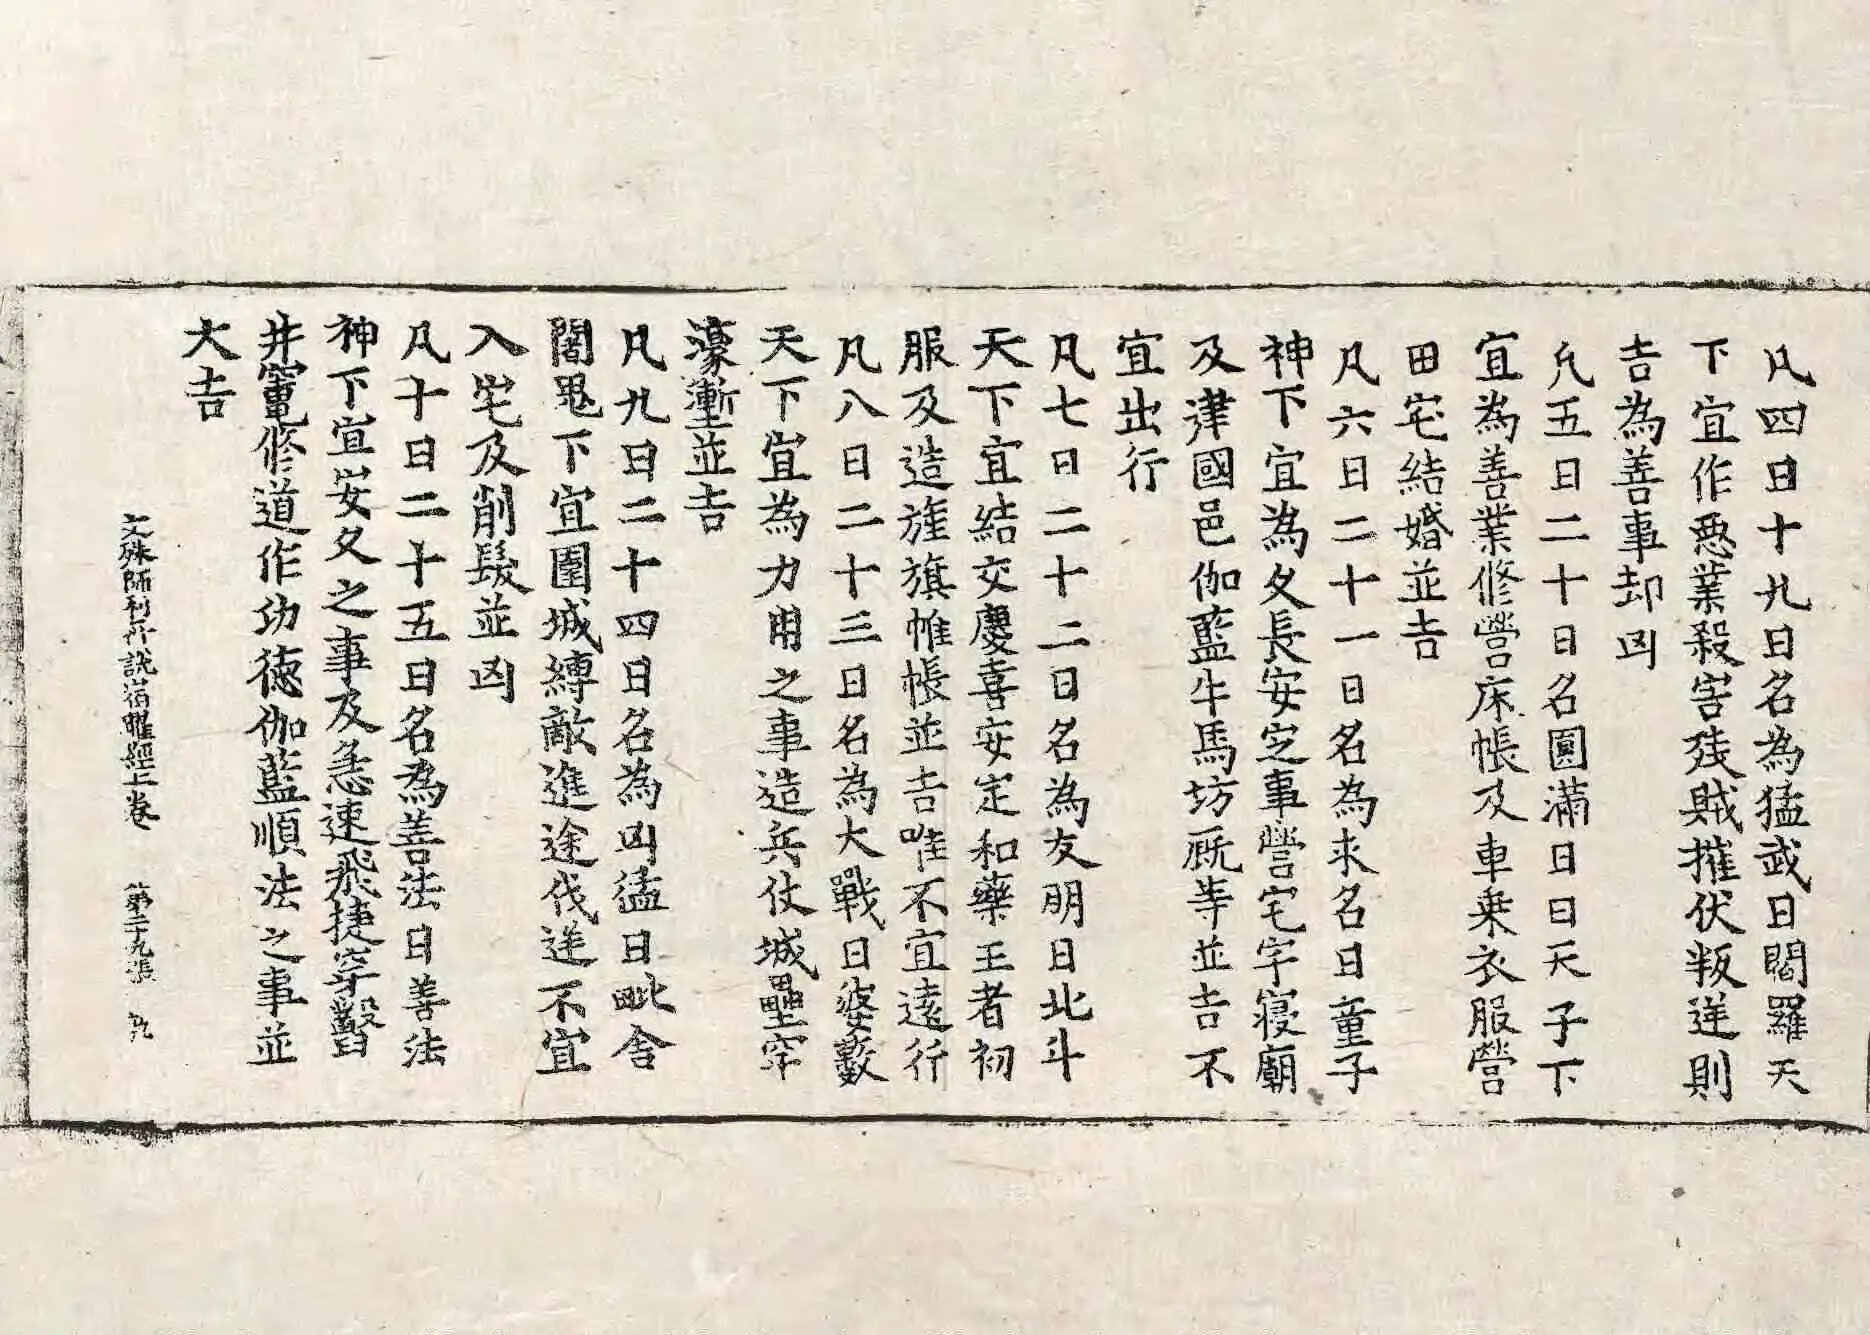 凡四日十九日名為猛武日閻羅天
下宜作惡業殺害殘賊摧伏叛逆則
吉為善事却凶
凡五日二十日名圓滿日曰天子下
宜為善業修營床帳及車乗衣服營
田宅結婚並吉
凡六日二十一日名為求名日童子
神下宜為久長安定事營宅宇寝廟
及建國邑伽藍牛馬坊厩等並吉不
宜出行
凡七日二十二日名為友朋日北斗
天下宜結交慶喜安定和藥王者初
服及造旌旗帷帳並吉唯不宜遠行
凡八日二十三日名為大戰日婆藪
天下宜為力用之事造兵仗城壘穿
濠塹並吉
凡九日二十四日名為凶猛日毗舍
闍鬼下宜圍城縛敵進途伐逆不宜
入宅及削髮並凶
凡十日二十五日名為善法日善法
神下宜安久之事及急速飛捷穿鑿
井竃修道作功徳伽藍順法之事並
大吉
文殊師利所說宿曜經上卷 第二十九張